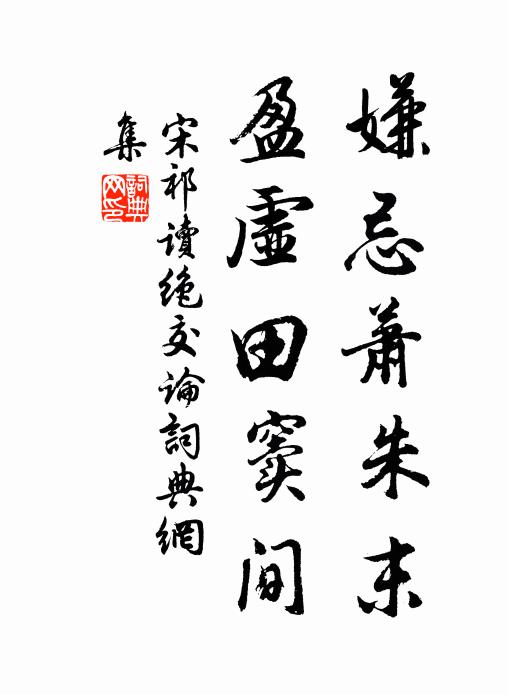 嫌忌萧朱末
盈虚田窦间
宋祁讀绝交論詞典網
集
詞典网印